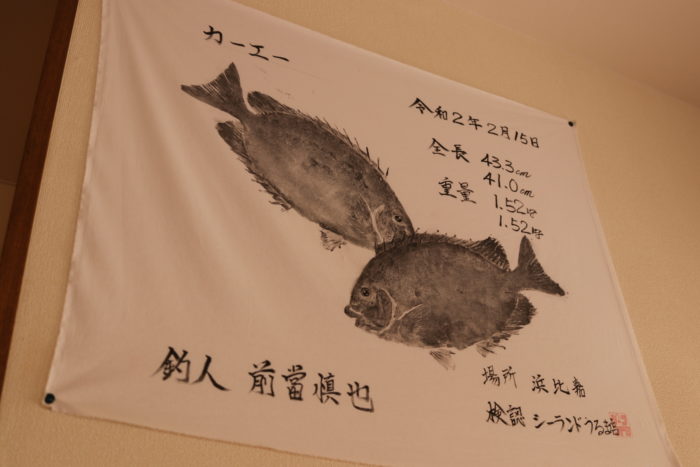 カーエー
令和2年2月15日
全長 43.3cm
41.0cm
重量 1.52㌔
1.52㌔
釣人 前當慎也
場所 浜比嘉
検認 シーランドうるま店